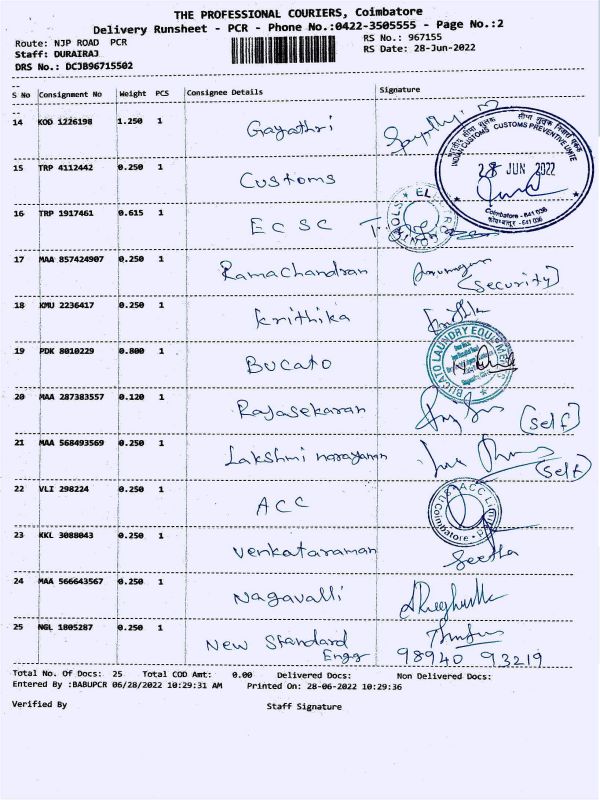 THE PROFESSIONAL COURIERS, Coimbatore
Delivery Runsheet - PCR - Phone No.:0422-3505555 - Page No.:2
Route: NJP ROAD PCR
RS No.: 967155
Staff: DURAIRAJ
RS Date: 28-Jun-2022
DRS No.: DCJB96715502
S No Consignment No Weight PCS Consignee Details Signature
14 KOD 1226198 1.250 1 Gayathri
15 TRP 4112442 0.250 1 Customs
INDIAN CUSTOMS CUSTOMS PREVENTIVE UNIT
28 JUN 2022
Coimbatore - 641 036
कोयम्बतूर - 641 036
16 TRP 1917461 0.615 1 ECSC
17 MAA 857424907 0.250 1 Ramachandran
(Security)
18 KMU 2236417 0.250 1 Krithika
19 PDK 8010229 0.800 1 Bucato
BUCATO LAUNDRY EQUIPMENTS
20 MAA 287383557 0.120 1 Rajasekaran
(Self)
21 MAA 568493569 0.250 1 Lakshmi narayanan
(Self)
22 VLI 298224 0.250 1 ACC
ACC Limited
Coimbatore
23 KKL 3088043 0.250 1 Venkataraman Seetha
24 MAA 566643567 0.250 1 Nagavalli
25 NGL 1805287 0.250 1 New Standard
Engg 98940 93219
Total No. Of Docs: 25 Total COD Amt: 0.00 Delivered Docs: Non Delivered Docs:
Entered By :BABUPCR 06/28/2022 10:29:31 AM Printed On: 28-06-2022 10:29:36
Verified By Staff Signature